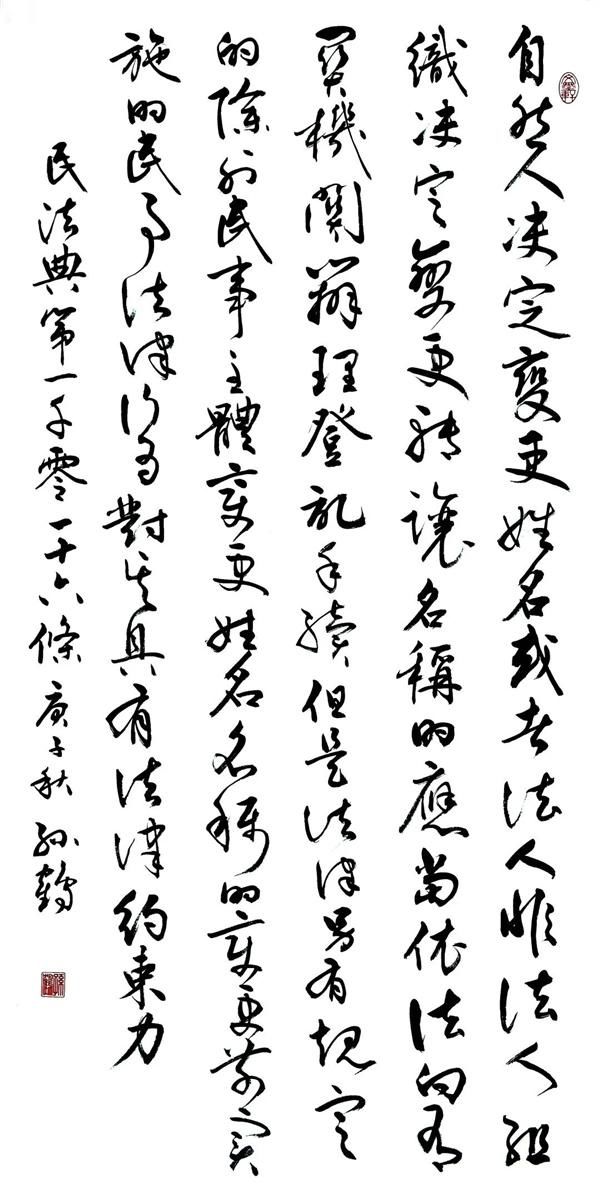 自然人决定變更姓名或者法人非法人組
織决定變更轉讓名稱的應當依法向有
關機關辦理登記手續但是法律另有規定
的除外民事主體變更姓名名稱的變更前實
施的民事法律行為對其具有法律約束力
民法典第一千零一十六條庚子秋孫鶴